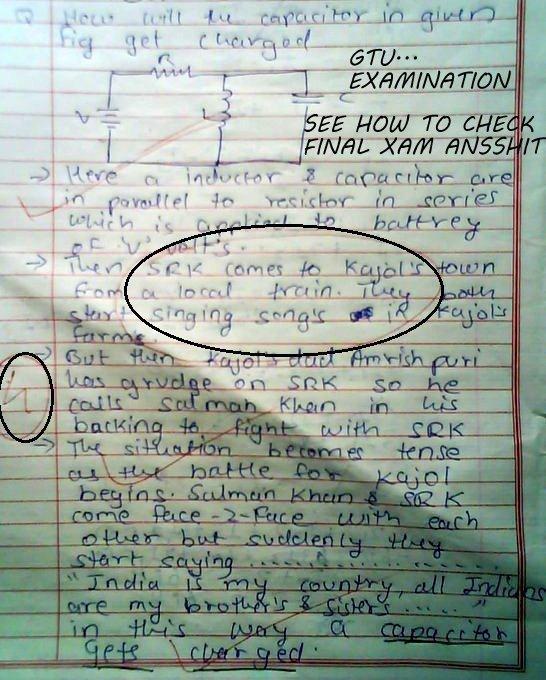 Q How will the capacitor in given
fig get charged
R
V
L
C
GTU...
EXAMINATION
SEE HOW TO CHECK
FINAL XAM ANSSHIT
→ Here a inductor & capacitor are
in parallel to resistor in series
which is applied to battrey
of 'V' volt's.
→ Then SRK comes to Kajol's town
from a local train. They both
start singing song's in Kajol's
farms.
→ But then Kajol's dad Amrish puri
has grudge on SRK so he
calls Salman Khan in his
backing to fight with SRK
→ The situation becomes tense
as the battle for Kajol
begins. Salman Khan & SRK
come face-2-face with each
other but suddenly they
start saying ........................
"India is my country, all Indians
are my brother's & sisters ......"
in this way a capacitor
gets charged.